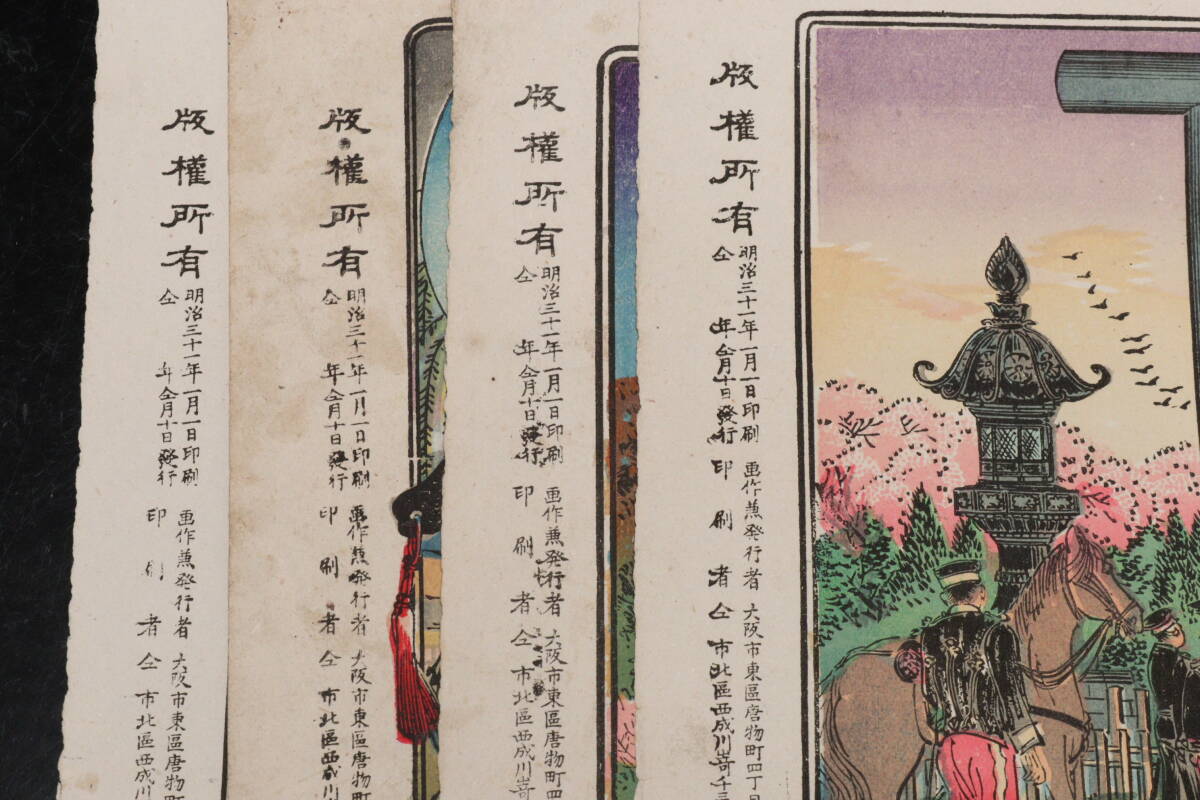 版權所有
明治三十一年一月一日印刷 画作兼発行者 大阪市東區唐物町四丁目
仝 年仝月十日發行 印刷者 仝市北區西成川嵜千三
版權所有
明治三十一年一月一日印刷 画作兼発行者 大阪市東區唐物町四
仝 年仝月十日發行 印刷者 仝市北區西成川嵜
版權所有
明治三十一年一月一日印刷 画作兼発行者 大阪市東區唐物町
仝 年仝月十日發行 印刷者 仝市北區西成川
版權所有
明治三十一年一月一日印刷 画作兼発行者 大阪市東區唐物町
仝 年仝月十日發行 印刷者 仝市北區西成川